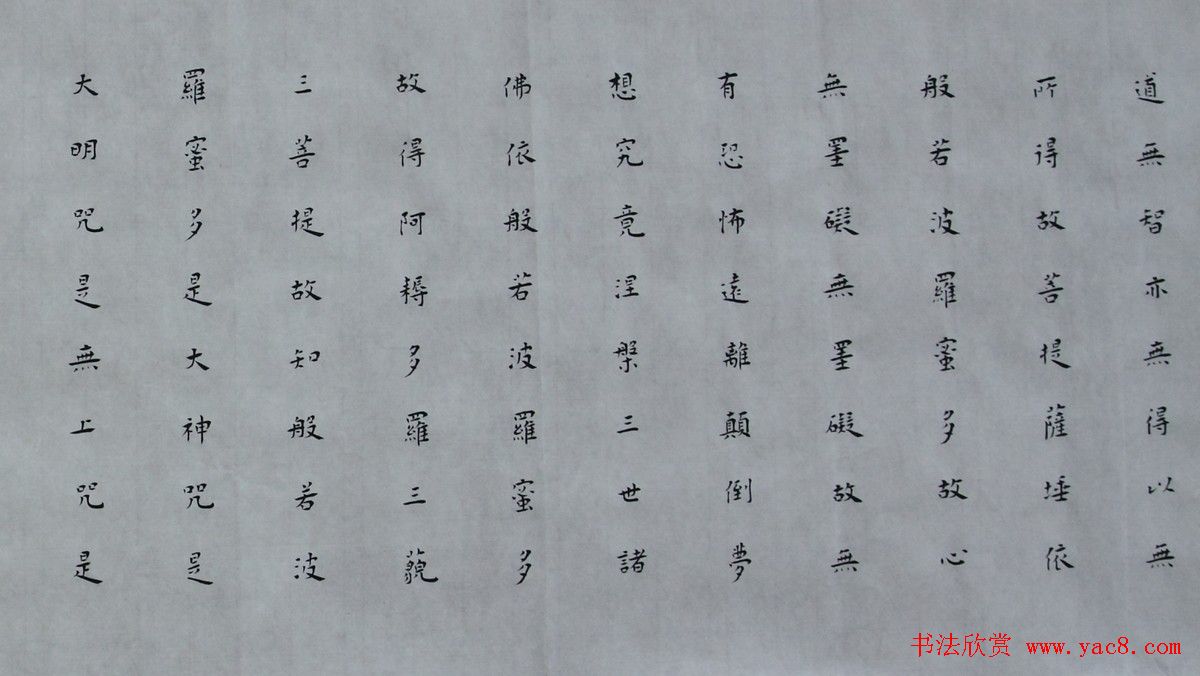 道無智亦無得以無
所得故菩提薩埵依
般若波羅蜜多故心
無罣礙無罣礙故無
有恐怖遠離顛倒夢
想究竟涅槃三世諸
佛依般若波羅蜜多
故得阿耨多羅三藐
三菩提故知般若波
羅蜜多是大神咒是
大明咒是無上咒是
书法欣赏 www.yac8.com